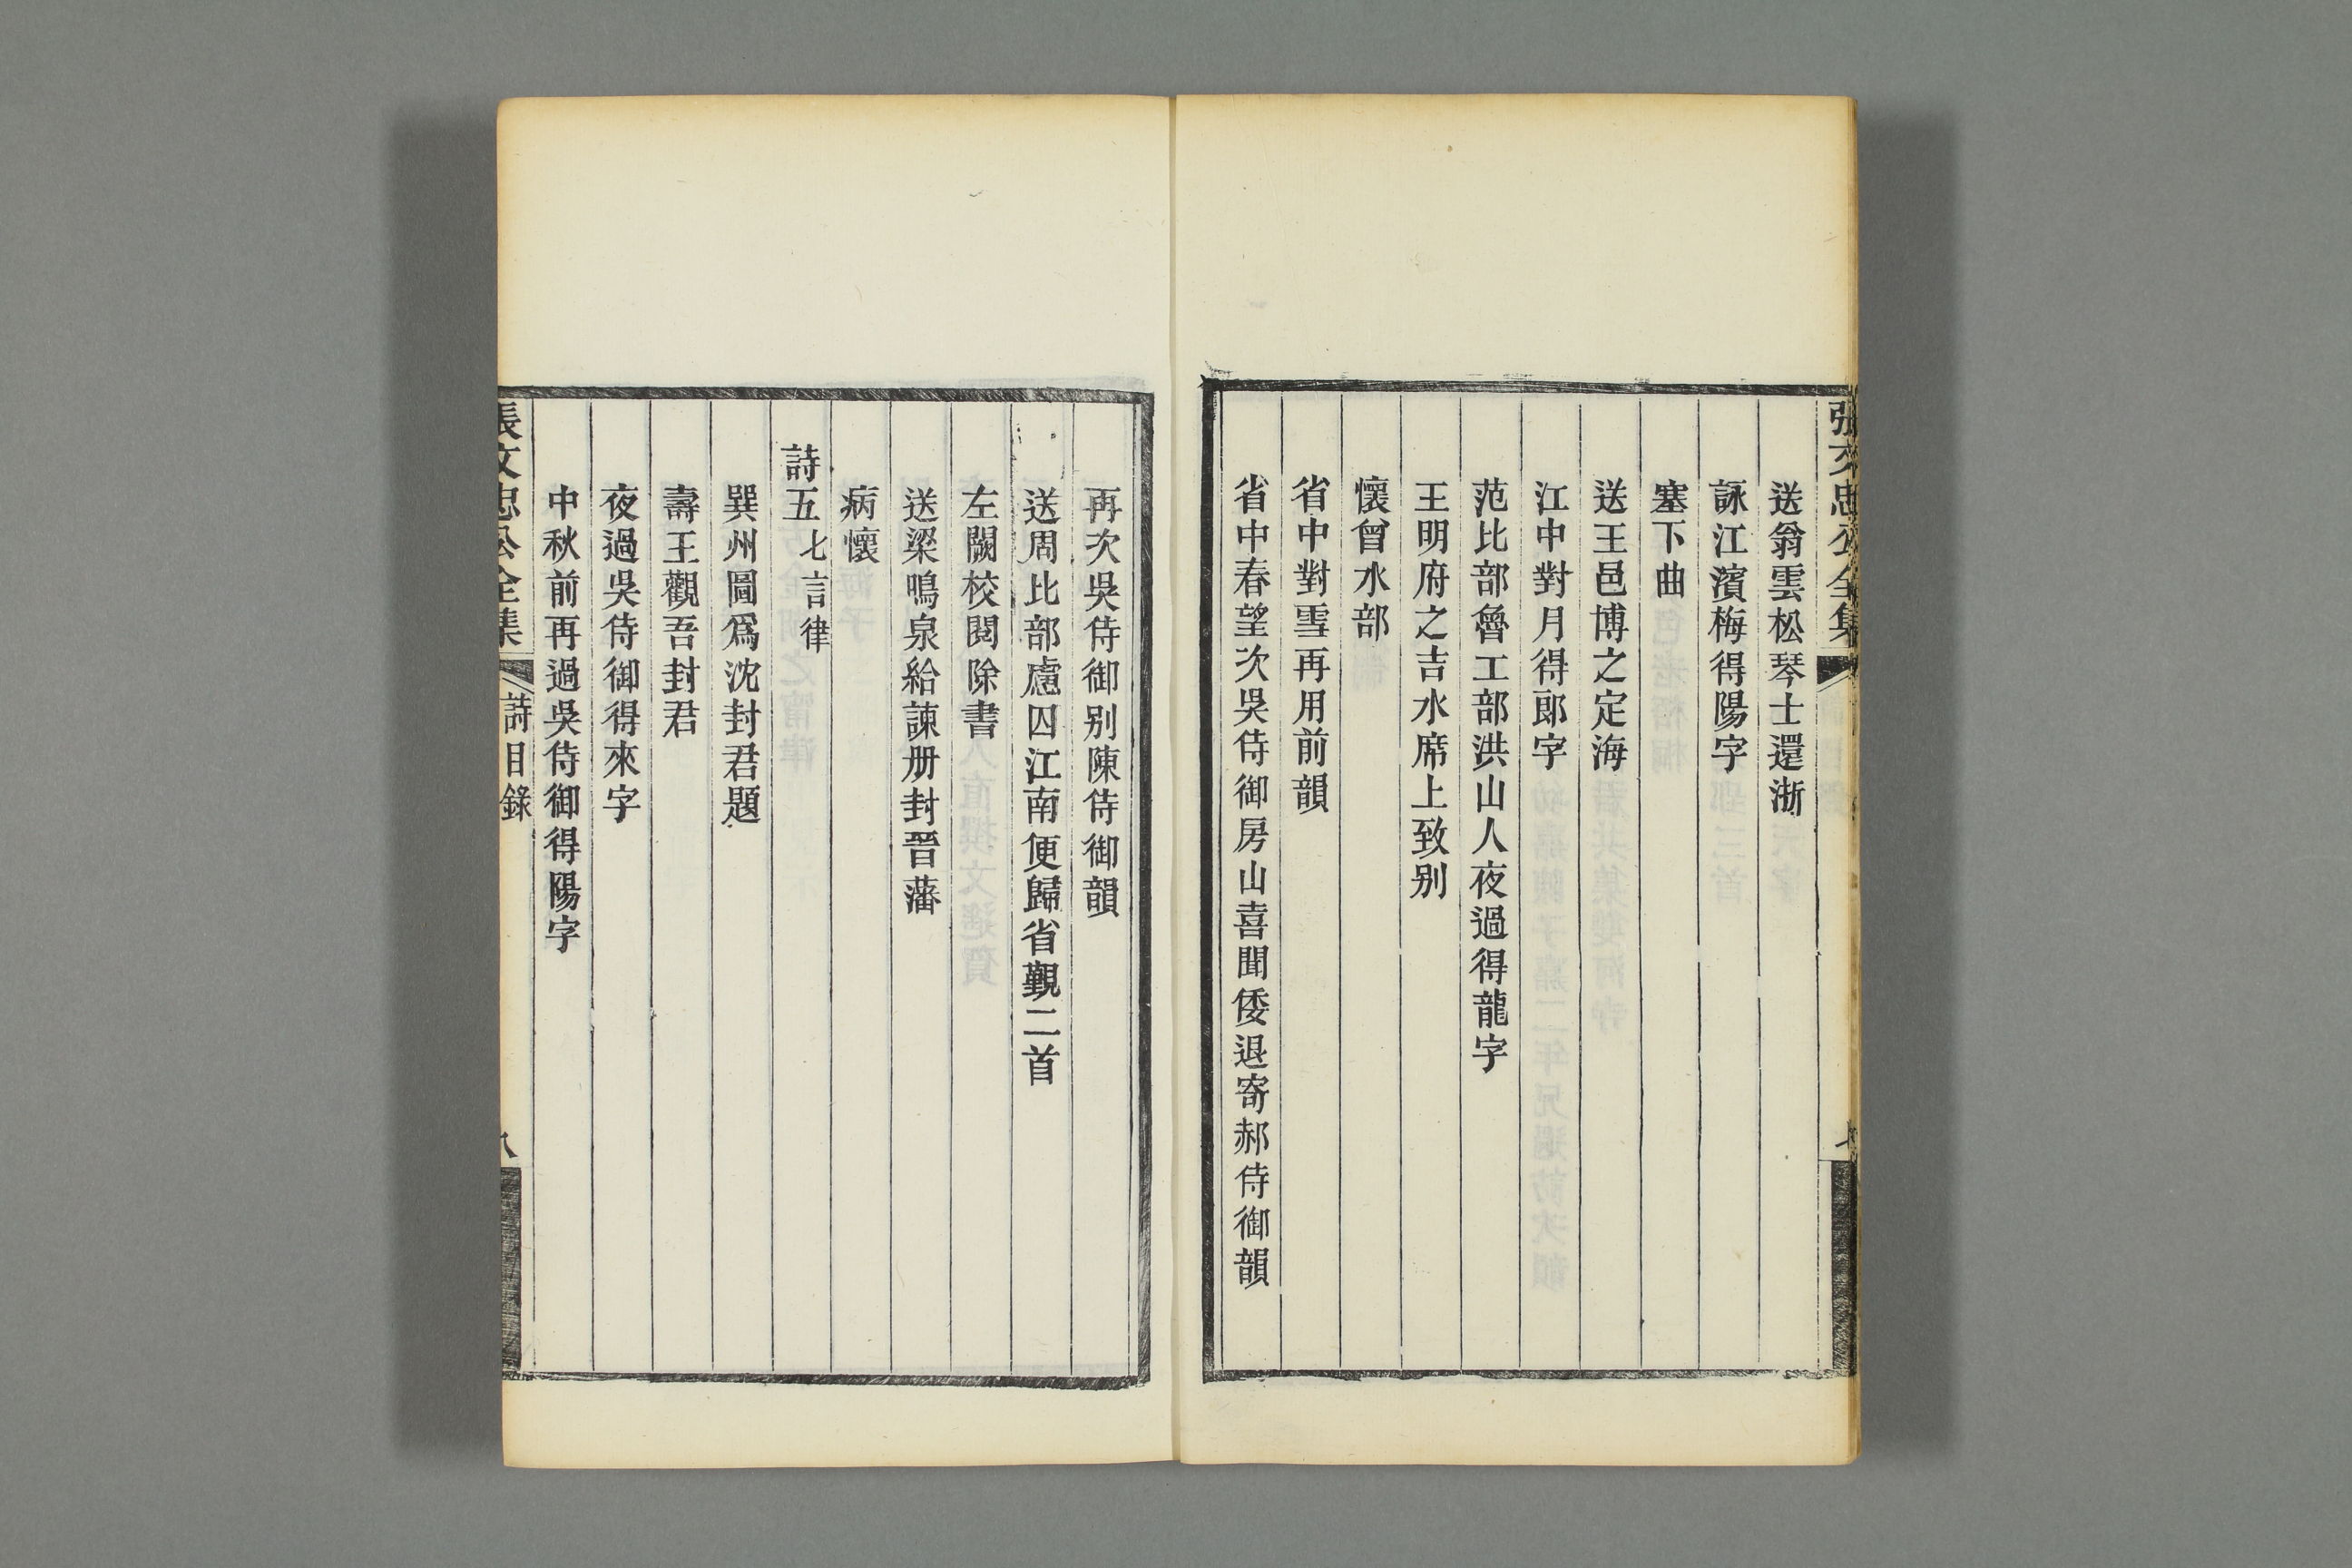 張文忠公全集
送翁雲松琴士還浙
詠江濱梅得陽字
塞下曲
送王邑博之定海
江中對月得郎字
范比部魯工部洪山人夜過得龍字
王明府之吉水席上致别
懷曾水部
省中對雪再用前韻
省中春望次吳侍御房山喜聞倭退寄郝侍御韻
再次吳侍御别陳侍御韻
送周比部慮囚江南便歸省觀二首
左闕校閱除書
送梁鳴泉給諫册封晉藩
病懷
詩五 七言律
巽州圖爲沈封君題
壽王觀吾封君
夜過吳侍御得來字
中秋前再過吳侍御得陽字
張文忠公全集 詩目錄 八